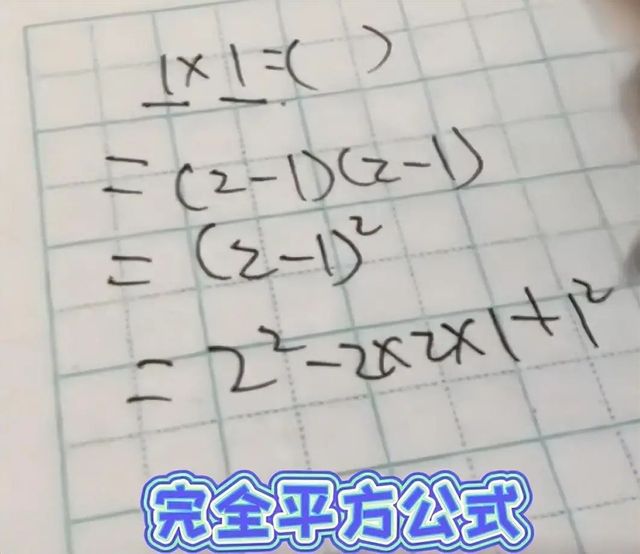 1×1=( )
=(2-1)(2-1)
=(2-1)²
=2²-2×2×1+1²
完全平方公式